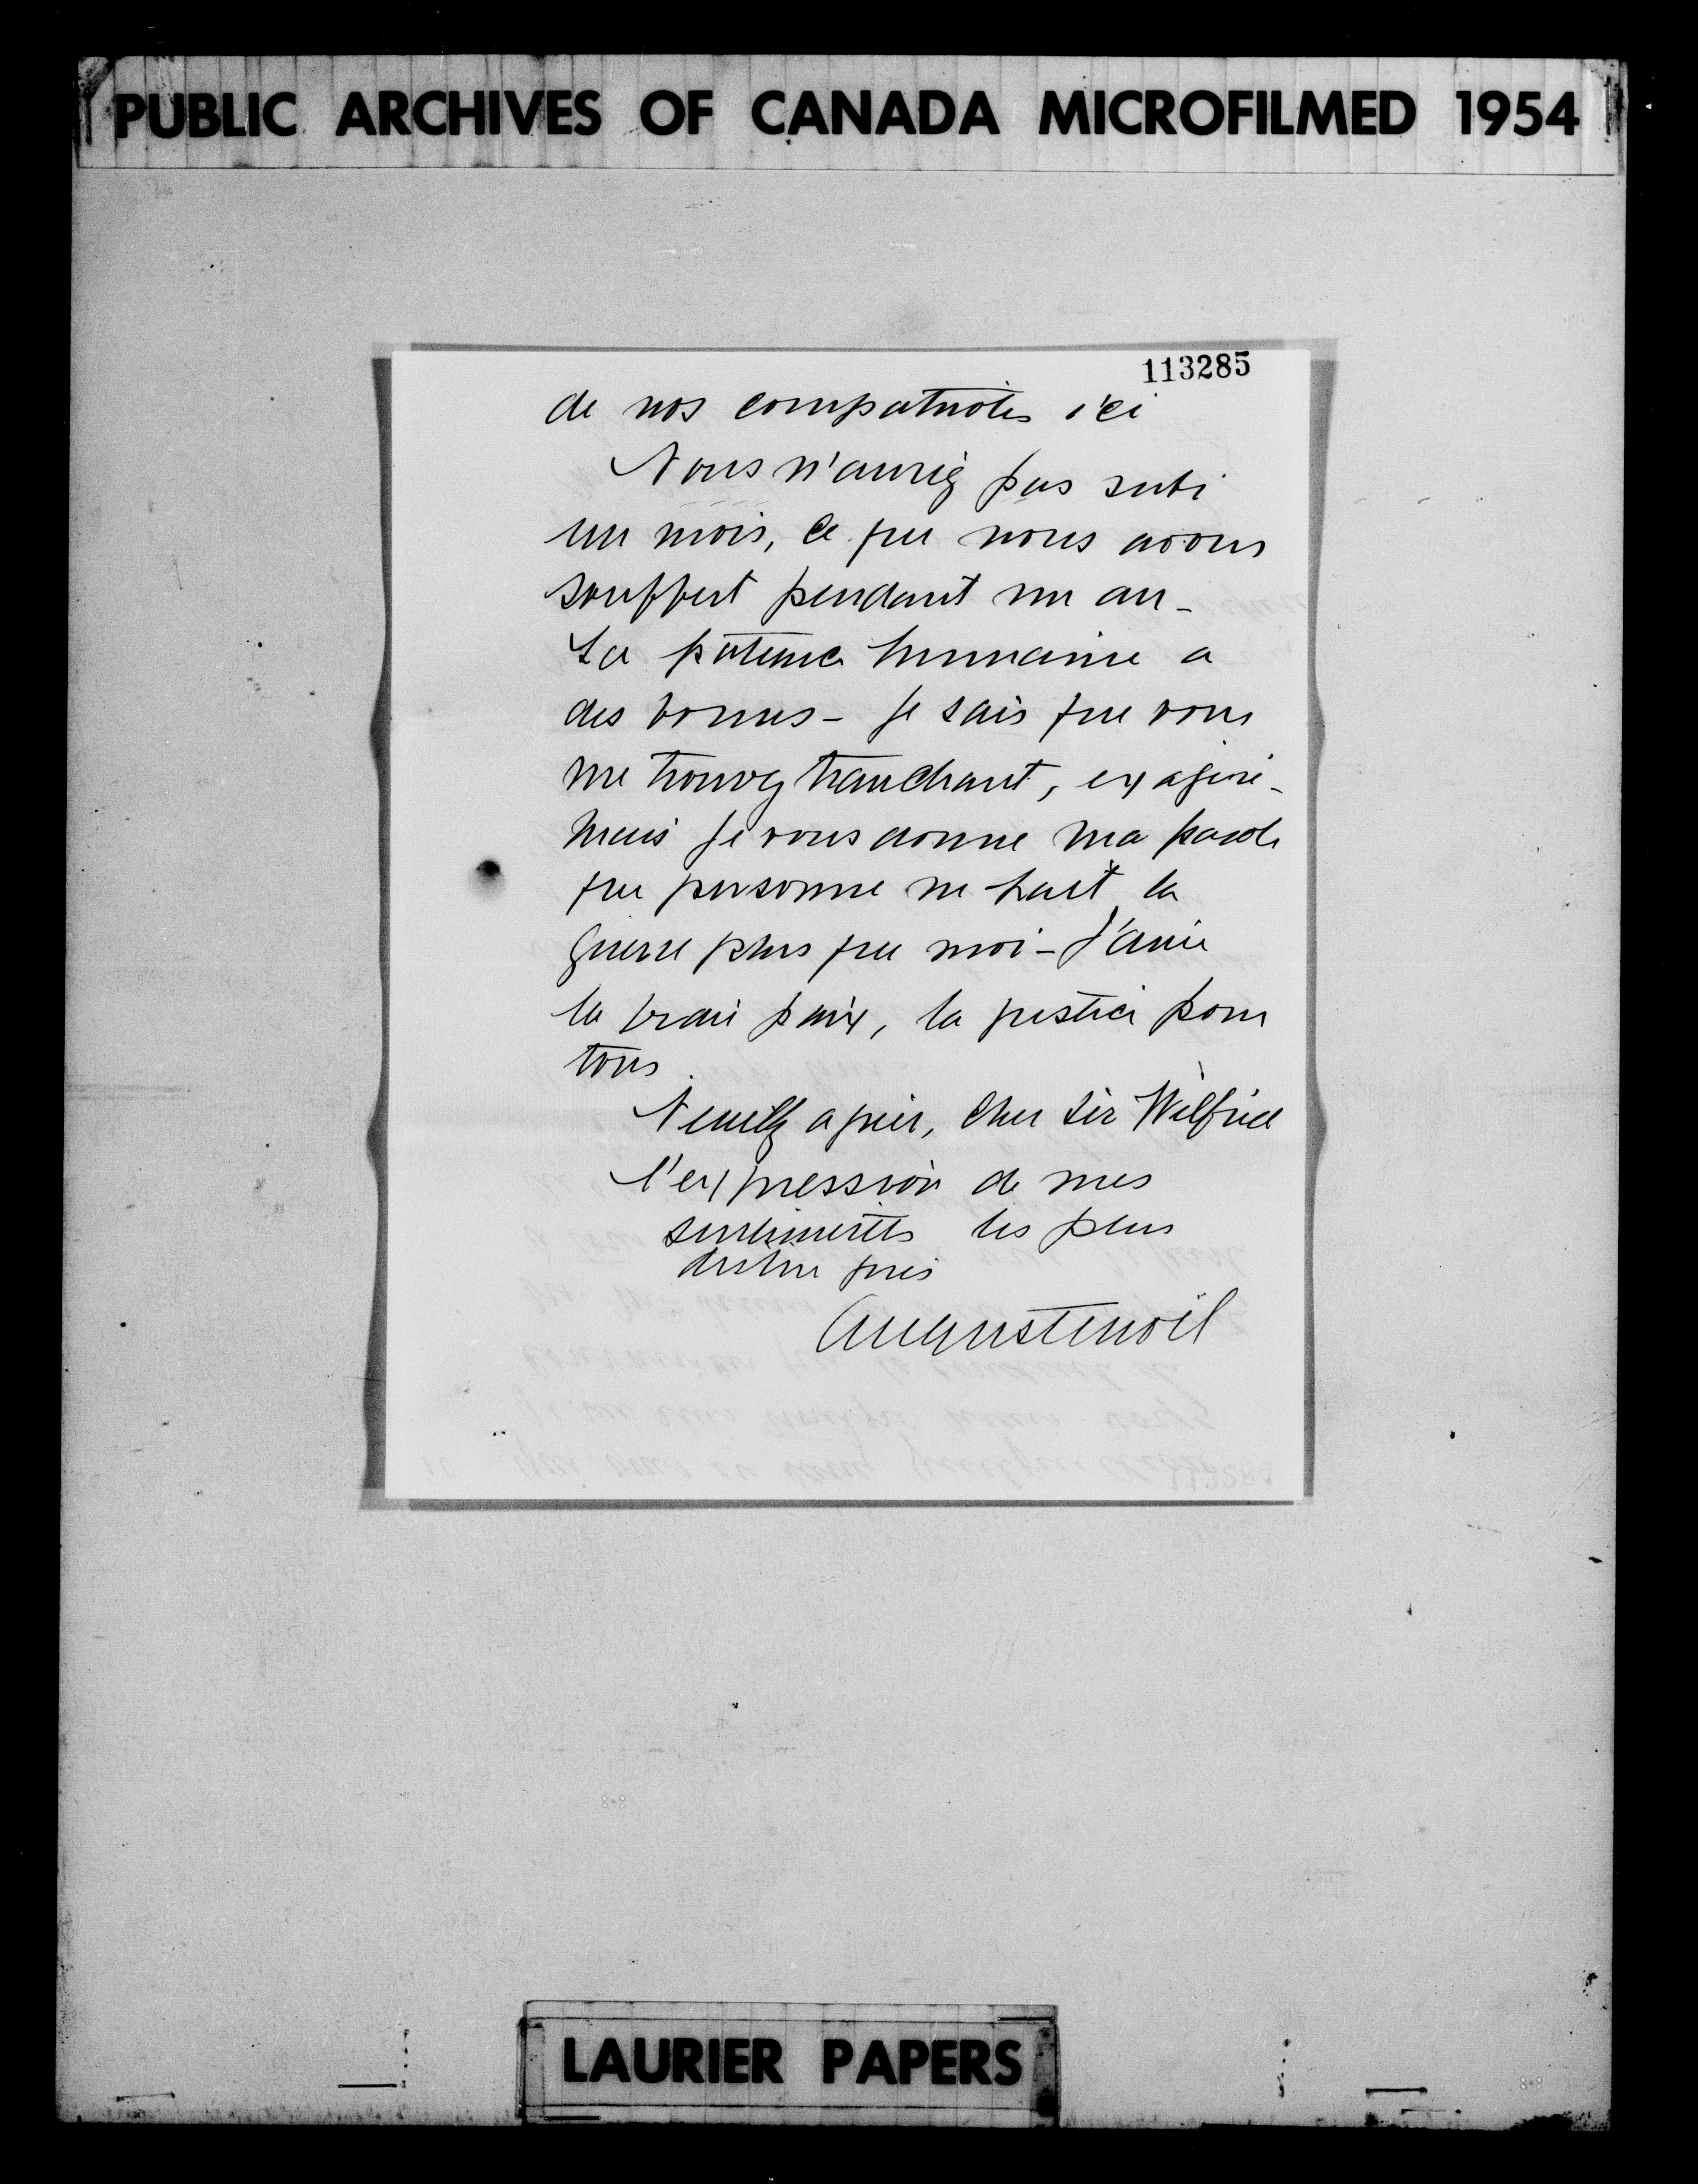 PUBLIC ARCHIVES OF CANADA MICROFILMED 1954
113285
de nos compatriotes ici
Vous n'auriez pas subi
un mois, ce que nous avons
souffert pendant un an -
La patience humaine a
des bornes - Je sais que vous
me trouvez tranchant, exagéré -
mais je vous donne ma parole
que personne ne hait la
guerre plus que moi - J'aime
la vraie paix, la justice pour
tous.
Veuillez agréer, cher Sir Wilfrid
l'expression de mes
sentiments les plus
distingués
Auguste Noël
LAURIER PAPERS